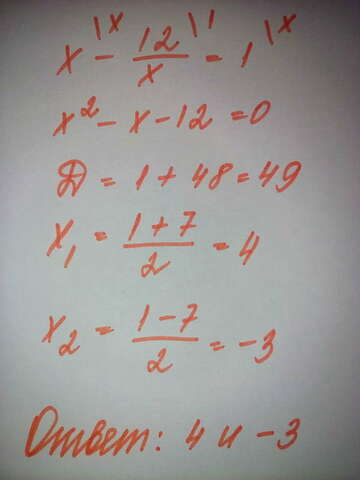 x^{\x} - \frac{12}{x}^{\1} = 1^{\x}
x² - x - 12 = 0
Д = 1 + 48 = 49
x₁ = \frac{1+7}{2} = 4
x₂ = \frac{1-7}{2} = -3
Ответ: 4 и -3